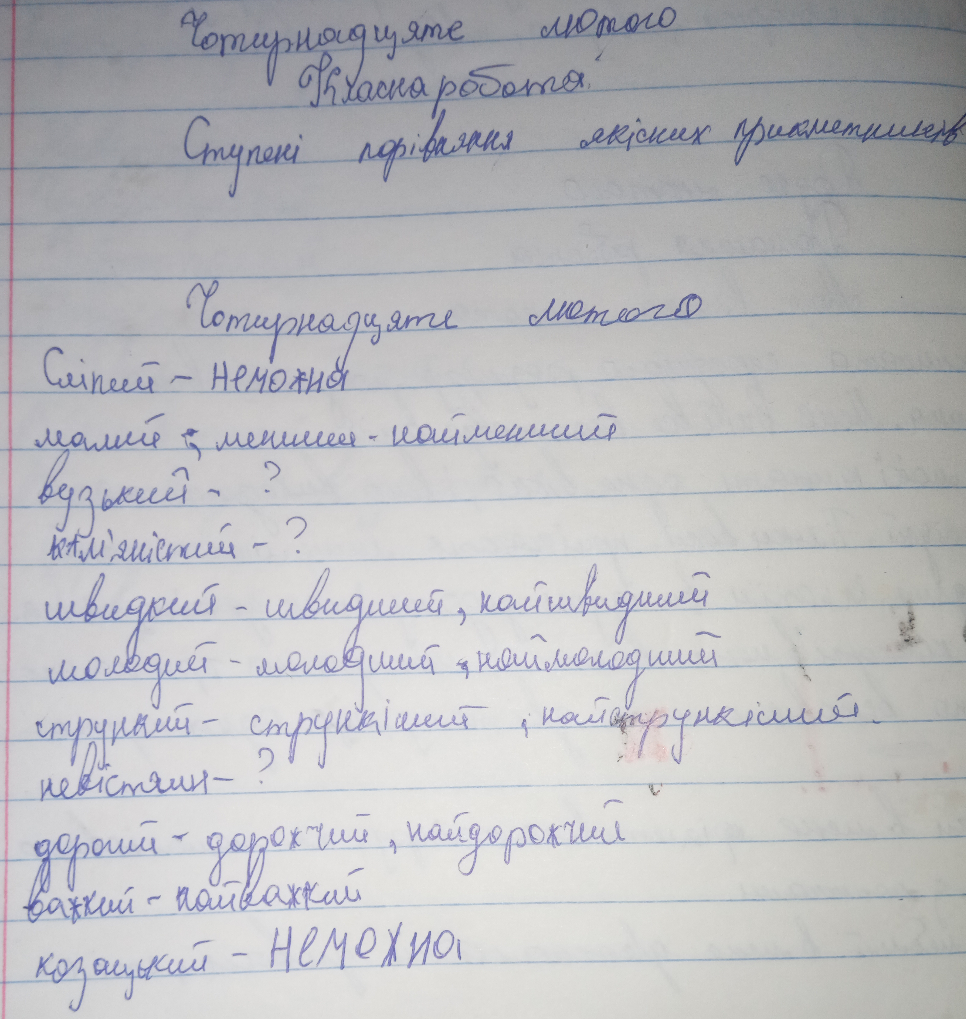 Чотирнадцяте лютого
Класна робота
Ступені порівняння якісних прикметників
Чотирнадцяте лютого
Сліпий - неможна
малий - менший - найменший
вузький - ?
кам'янистий - ?
швидкий - швидший, найшвидший
молодий - молодший, наймолодший
стрункий - стрункіший, найстрункіший.
- ?
дорогий - дорожчий, найдорожчий
важкий - найважкий
козацький - неможна